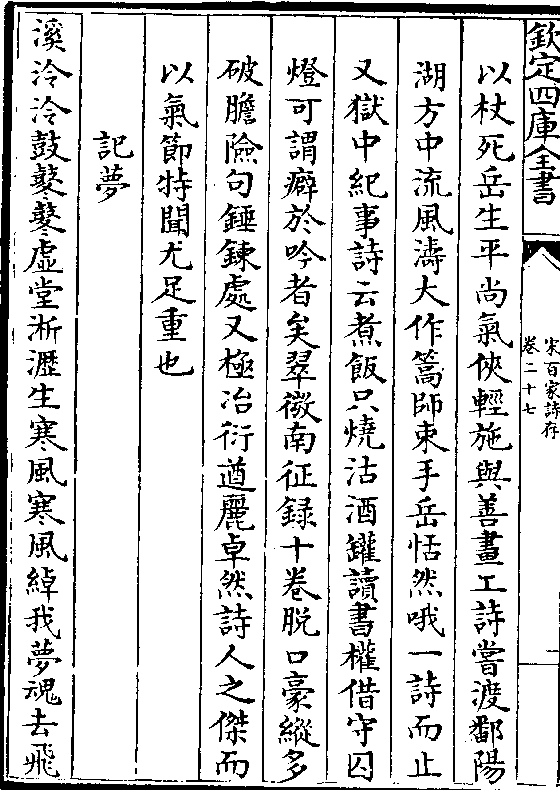 欽定四庫全書
宋百家詩存
卷二十七
以杖死岳生平尚氣俠輕施與善畫工詩嘗渡鄱陽
湖方中流風濤大作篙師束手岳恬然哦一詩而止
又獄中紀事詩云煮飯只燒沽酒罐讀書權借守囚
燈可謂癖於吟者矣翠微南征録十卷脱口豪縱多
破膽險句錘鍊處又極冶衍遒麗卓然詩人之傑而
以氣節特聞尤足重也
記夢
溪泠泠鼓鼕鼕虛堂淅瀝生寒風寒風綽我夢魂去飛